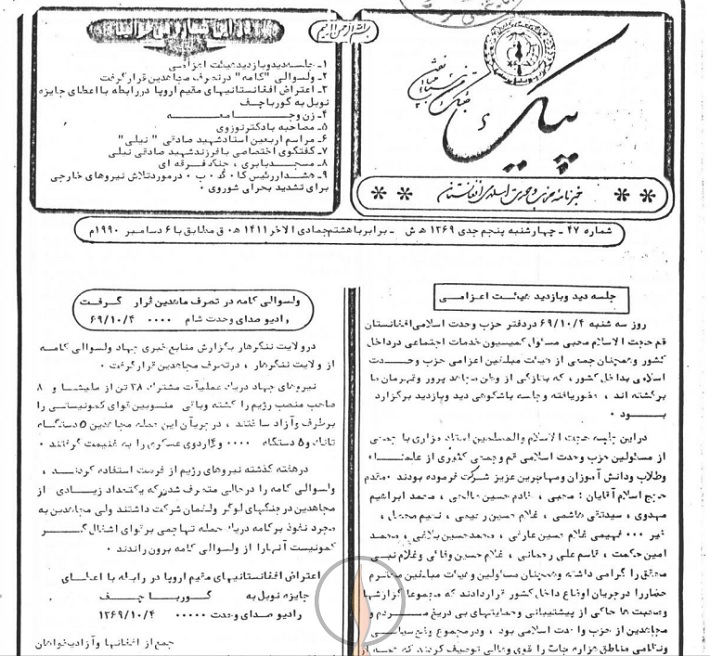 بسم الله الرحمن الرحیم
۱- جلسه دیدوبازدیدهیئت اعزامی
۲- ولسوالی "کامه" درتصرف مجاهدین قرارگرفت
۳- اعتراض افغانستانیهای مقیم اروپا دررابطه بااعطای جایزه
نوبل به گورباچف
۴- زن وجامعه
۵- مصاحبه بادکترنوزوی
۶- مراسم اربعین استادشهید صادقی "نیلی"
۷- گفتگوی اختصاصی بافرزندشهید صادقی نیلی
۸- مسجدبابری ، جنگ فرقه ای
۹- هشداررئیس کا ۰ گ ۰ ب ۰ درموردتلاش نیروهای خارجی
برای تشدید بحرای شوروی ۰
پیک
خبرنامه حزب وحدت اسلامی افغانستان
شماره ۴۷ - چهارشنبه پنجم جدی ۱۳۶۹ ه ش - برابرباهشتم جمادی الاخر ۱۴۱۱ ه ق مطابق با ۶ دسامبر ۱۹۹۰م
جلسه دید وبازدید هیئت اعزامی
روز سه شنبه ۶۹/۱۰/۴ دردفتر حزب وحدت اسلامی افغانستان
قم حجت الاسلام محبی مسئول کمیسیون خدمات اجتماعی درداخل
کشور وهمچنان جمعی از هیئت مبلغین اعزامی حزب وحدت
اسلامی بداخل کشور، که بتازگی از وطن مجاهد پرور وقهرمان ما
برگشته اند ، حضوریافته وجلسه باشکوهی دید وبازدید برگزارد
بود ۰
دراین جلسه حجت الاسلام والمسلمین استاد مزاری با جمعی
از مسئولین حزب وحدت اسلامی قم وجمعی کثیری از علما
وطلاب ودانش آموزان ومهاجرین عزیز شرکت فرموده بودند مقدم
حجج اسلام آقایان : محبی ، خادم حسین صالحی ، محمد ابراهیم
مهدوی ، سیدتقی هاشمی ، غلام حسین رحیمی ،
فهیمی غلام حسین عارفی ، محمدحسین بلاغی ، محمد
امین حکمت ، قاسم علی رحمانی ، غلام حسین وفائی وغلام نبی
محقق را گرامی داشته وهمچنان مسئولین وهیئت مبلغین محترم
حضاررا درجریان اوضاع داخل کشور قراردادند که مجموعا گزارشها
وصحبت ها حاکی از پشتیبانی وحمایتهای بی دریغ مردم و
مجاهدین از حزب وحدت اسلامی بود ، ودرمجموع وضع سیاسی
ونظامی مناطق هزاره جات را قوی وعالی توصیف کردند که
ولسوالی کامه در تصرف مجاهدین قرار گرفت
رادیو صدای وحدت شام ۰۰۰۰ ۶۹/۱۰/۴
درولایت ننگرهار بگزارش منابع خبری جهاد ولسوالی کامه
از ولایت ننگرهار ، درتصرف مجاهدین قرارگرفت ۰
نیروهای جهاد دریک عملیات مشترک ۳۸ تن از ملیشا و ۸
صاحب منصب رژیم را کشته وباقی منسوبین قوای کمونیستی را
برطرف وآزاد ساختند ، درجریان این حمله مجاهدین ۵ دستگاه
تانک و۵ دستگاه ۰۰۰۰ و گاردوی عسکری را به غنیمت گرفتند ۰
درهفته گذشته نیروهای رژیم از فرصت استفاده کردند ،
ولسوالی کامه را درحالی متصرف شدن که یکتعداد زیادی از
مجاهدین در جنگهای لوگر ولغمان شرکت داشتند ولی مجاهدین به
مجرد نفوذ برکامه دریک حمله تهاجمی برقوای اشغالگر
کمونیست آنهارا از ولسوالی کامه برون راندند ۰
اعتراض افغانستانیهای مقیم اروپا در رابطه با اعطای
جایزه نوبل به گورباچف
رادیو صدای وحدت ۰۰۰۰۰ ۱۳۶۹/۱۰/۴
جمع از افغانها وآزادیخواهان